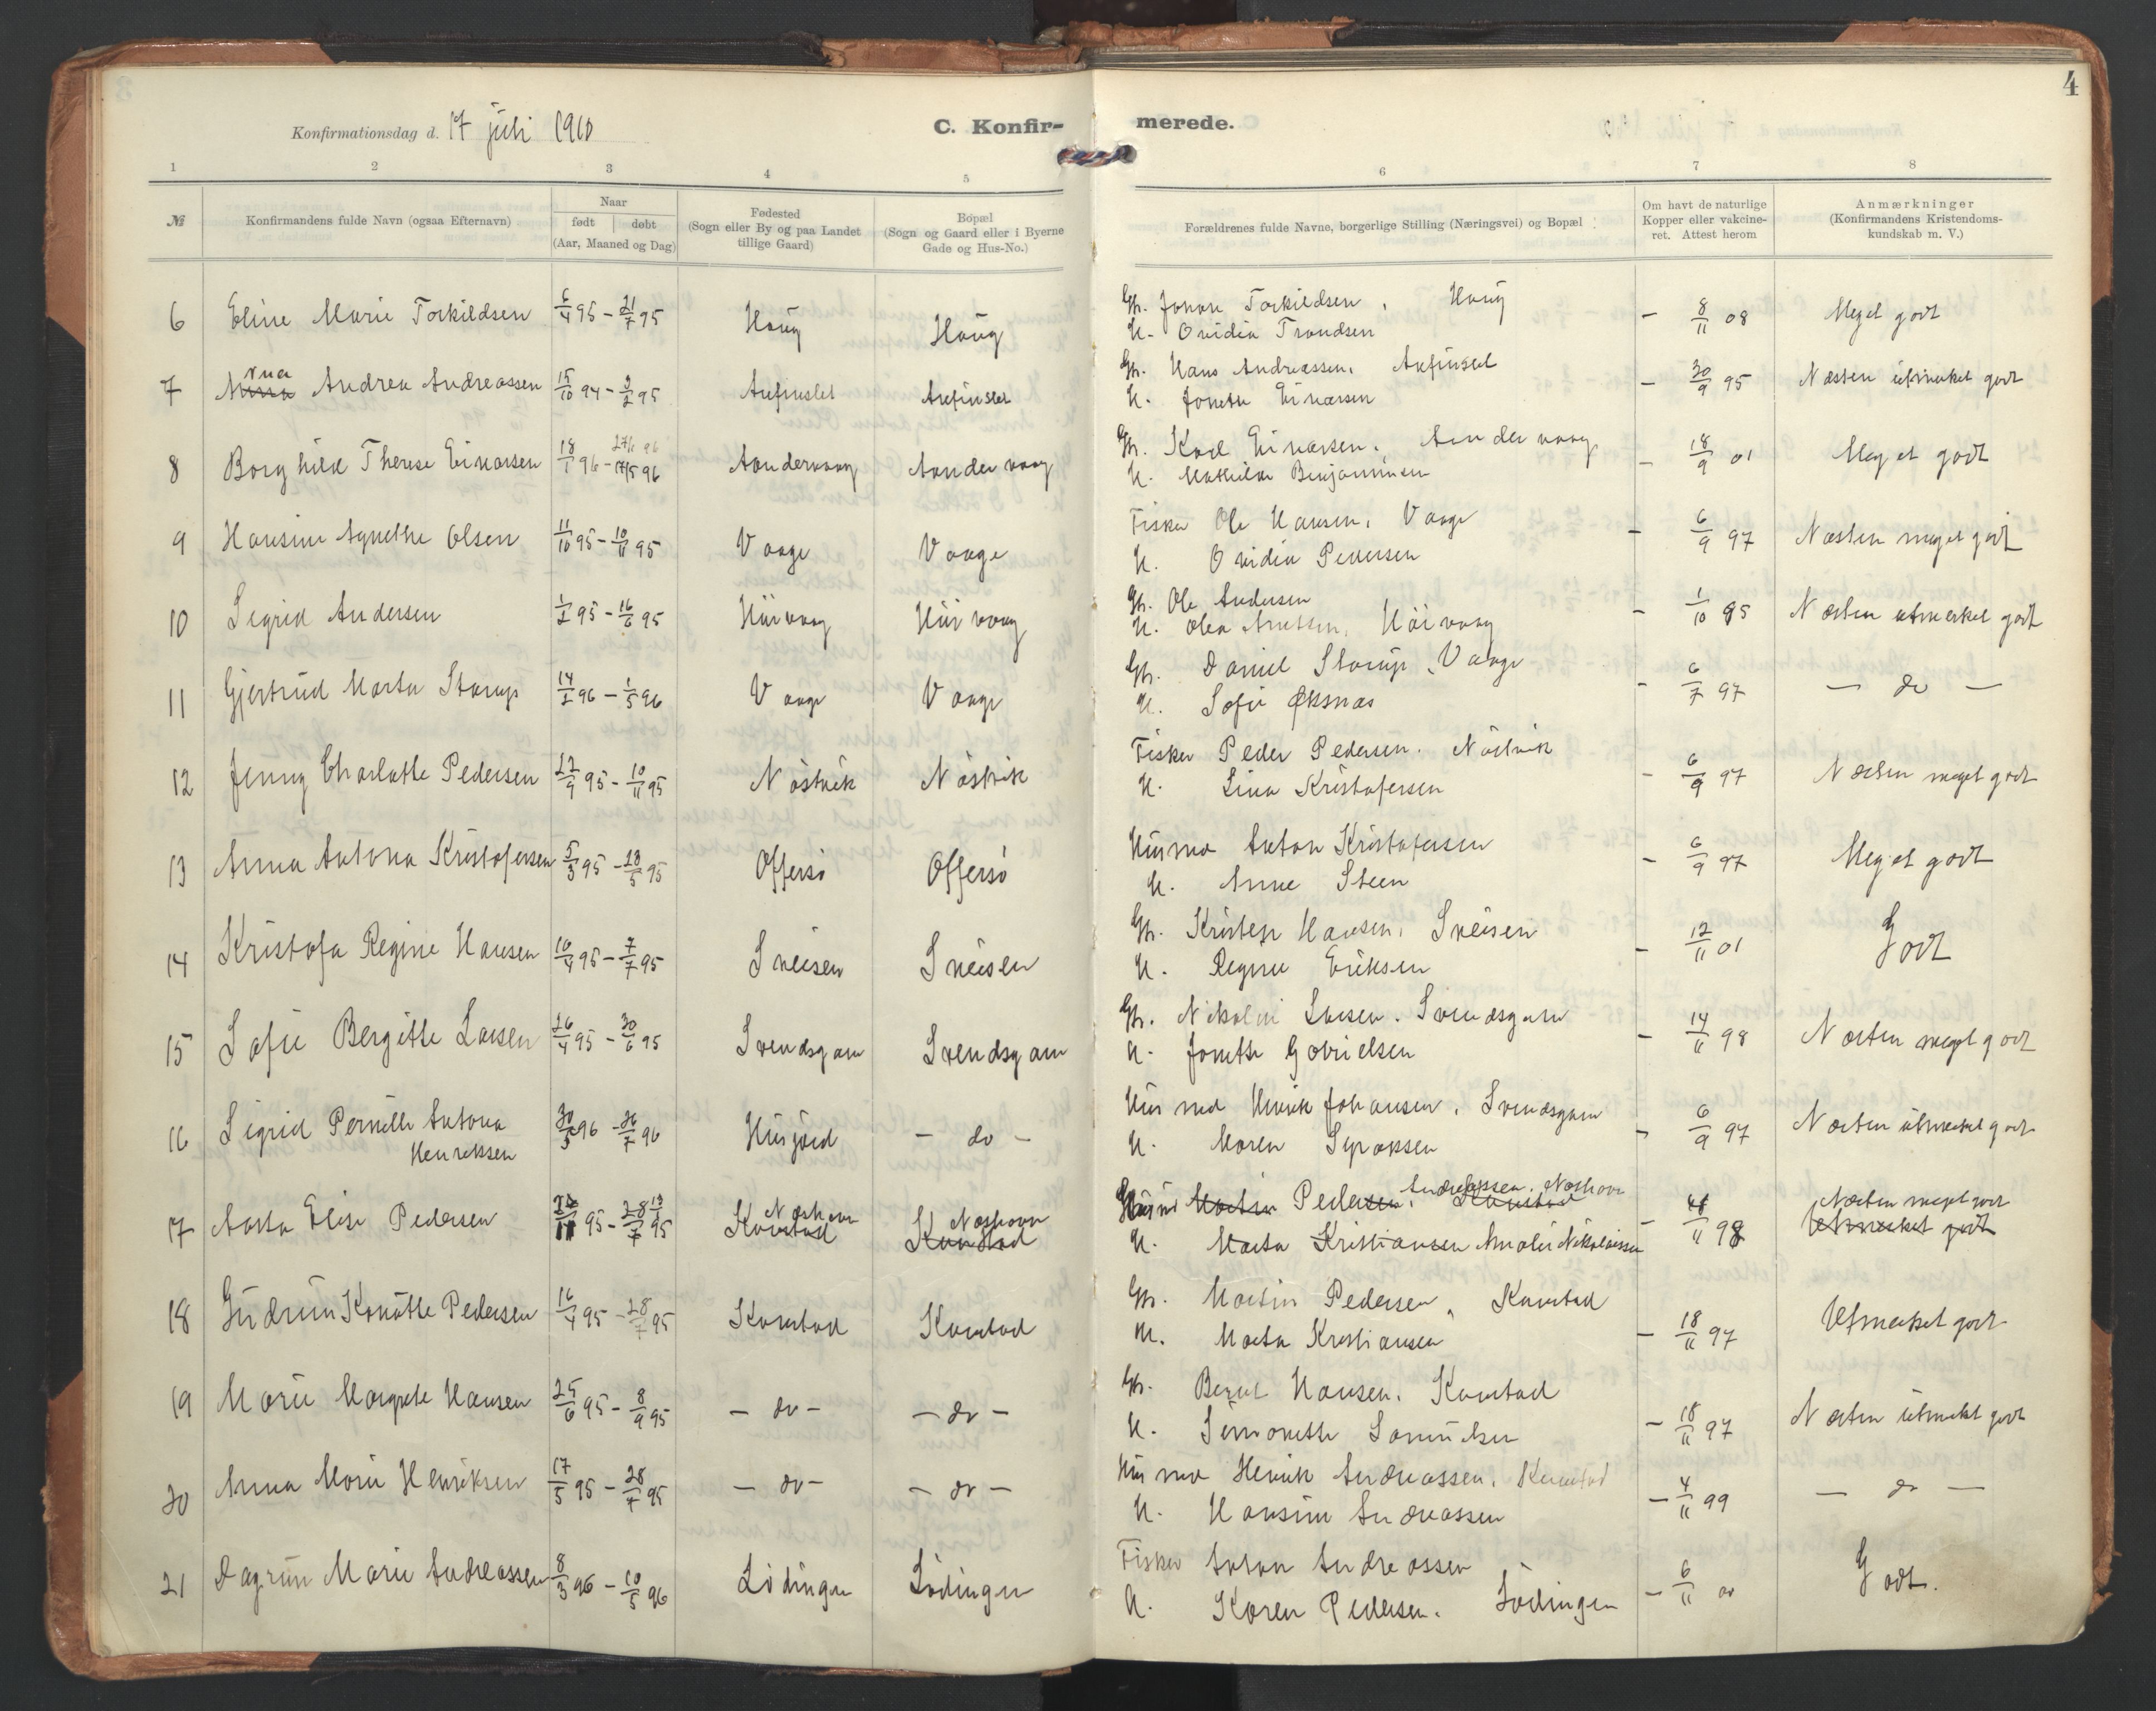 4
Konfirmationsdag d. 17 juli 1910
C. Konfir-
merede.
1 2 3 4 5 6 7 8
№
Konfirmandens fulde Navn (ogsaa Efternavn)
Naar
født døbt
(Aar, Maaned og Dag)
Fødested
(Sogn eller By og paa Landet
tillige Gaard)
Bopæl
(Sogn og Gaard eller i Byerne
Gade og Hus-No.)
Forældrenes fulde Navne, borgerlige Stilling (Næringsvei) og Bopæl
Om havt de naturlige
Kopper eller vakcine-
ret. Attest herom
Anmærkninger
(Konfirmandens Kristendoms-
kundskab m. V.)
6 Eline Marie Torkildsen 6/4 95 - 21/7 95 Haug Haug
Gb. Johan Torkildsen, Haug
H. Ovidia Trondsen
- 8/11 08 Meget godt
7 Andrea Andreassen 15/10 94 - 2/2 95 Arfinslet Arfinslet
Gb. Hans Andreassen, Arfinslet
H. Jonette Einarsen
- 30/9 95 Næsten utmerket godt
8 Borghild Therese Einarsen 18/1 96 - 17/5 96 Aandervaag Aandervaag
Gb. Karl Einarsen, Aandervaag
H. Mathilde Benjaminsen
- 18/9 01 Meget godt
9 Hansine Agnethe Olsen 11/10 95 - 10/11 95 Vaage Vaage
Fisker Ole Hansen, Vaage
H. Ovidia Pedersen
- 6/9 97 Næsten meget godt
10 Sigrid Andersen 1/2 95 - 16/6 95
Gb. Ole Andersen
H. Olea Arntsen,
- 1/10 95 Næsten utmerket godt
11 Gjertrud Marta Storup 14/2 96 - 1/5 96 Vaage Vaage
Gb. Daniel Storup, Vaage
H. Sofie Øksnæs
- 6/7 97 - do -
12 Jenny Charlotte Pedersen 22/9 95 - 10/11 95 Nöstvik Nöstvik
Fisker Peder Pedersen. Nöstvik
H. Lina Kristofersen
- 6/9 97 Næsten meget godt
13 Anna Antona Kristofersen 5/3 95 - 18/5 95 Offersö Offersö
Husmd Anton Kristofersen
H. Anne Steen
- 6/9 97 Meget godt
14 Kristofa Regine Hansen 16/4 95 - 7/7 95 Sneisen Sneisen
Gb. Kristen Hansen, Sneisen
H. Regine Eriksen
- 12/11 01 Godt
15 Sofie Bergitte Larsen 26/4 95 - 30/6 95 Svendsgam Svendsgam
Gb. Nikolai Larsen. Svendsgam
H. Jonette Gabrielsen
- 14/11 98 Næsten meget godt
16 Sigrid Pernille Antona 30/5 96 - 26/7 96 Husjord - do -
Henriksen
Husmd Henrik Johansen, Svendsgam
H. Maren Syraksen
- 6/9 97 Næsten utmerket godt
17 Aasta Elise Pedersen Næshavn Næshavn
Kanstad Kanstad
Martin Pedersen. Andreassen. Næshavn Kanstad
H. Marta Kristiansen Amalie Nikolaisen
Næsten meget godt
Utmerket godt
18 Gudrun Konötte Pedersen 16/4 95 - 28/7 95 Kanstad Kanstad
Gb. Martin Pedersen, Kanstad
H. Marta Kristiansen
- 18/11 97 Utmerket godt
19 Marie Margrete Hansen 25/6 95 - 8/9 95 - do - - do -
Gb. Bernt Hansen, Kanstad
H. Simonette Samuelsen
- 18/11 97 Næsten utmerket godt
20 Anna Marie Henriksen 17/5 95 - 28/7 95 - do - - do -
Husmd Henrik Andreassen, Kanstad
H. Hansine Andreassen
- 4/11 99 - do -
21 Dagrun Marie Andreassen 8/3 96 - 10/5 96 Lödingen Lödingen
Fisker Johan Andreassen
H. Karen Pedersen. Lödingen
- 6/11 00 Godt.